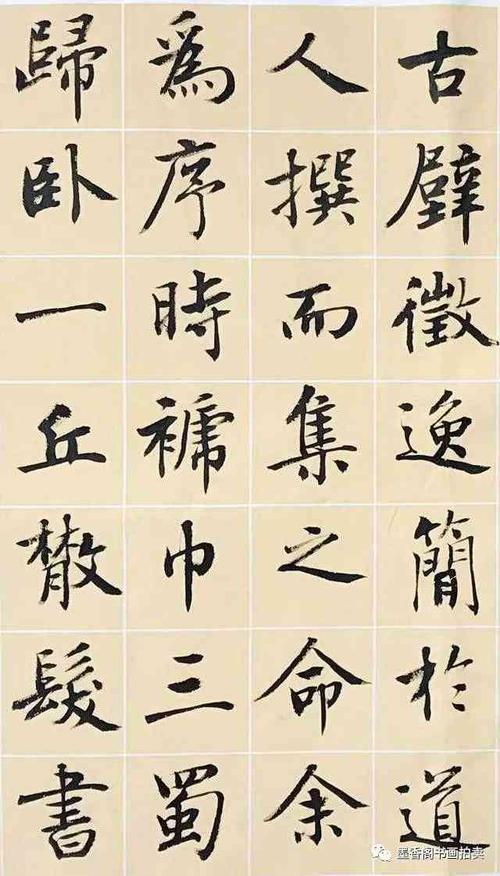 古壁徵逸簡於道
人撰而集之命余
爲序時褫巾三蜀
歸卧一丘散髮書
墨香阁书画拍卖